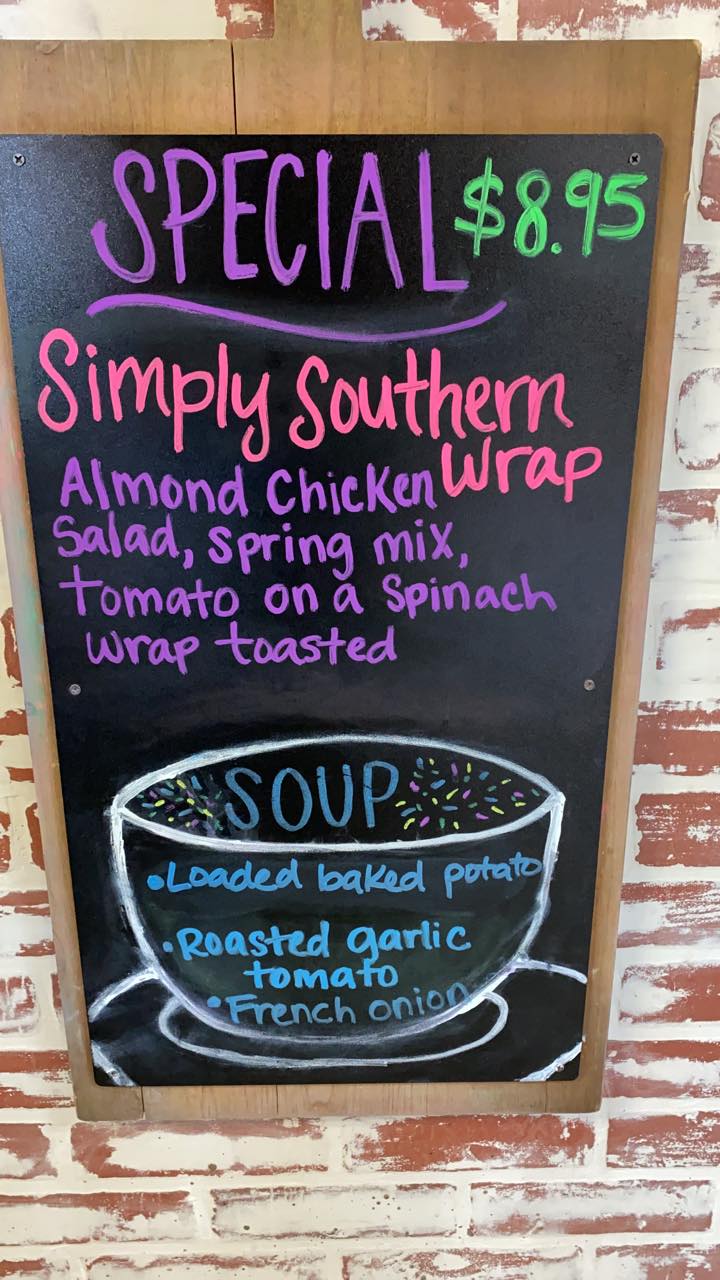 SPECIAL $8.95
Simply Southern
Wrap
Almond Chicken
Salad, spring mix,
tomato on a spinach
wrap toasted
SOUP
•Loaded baked potato
•Roasted garlic
tomato
•French onion